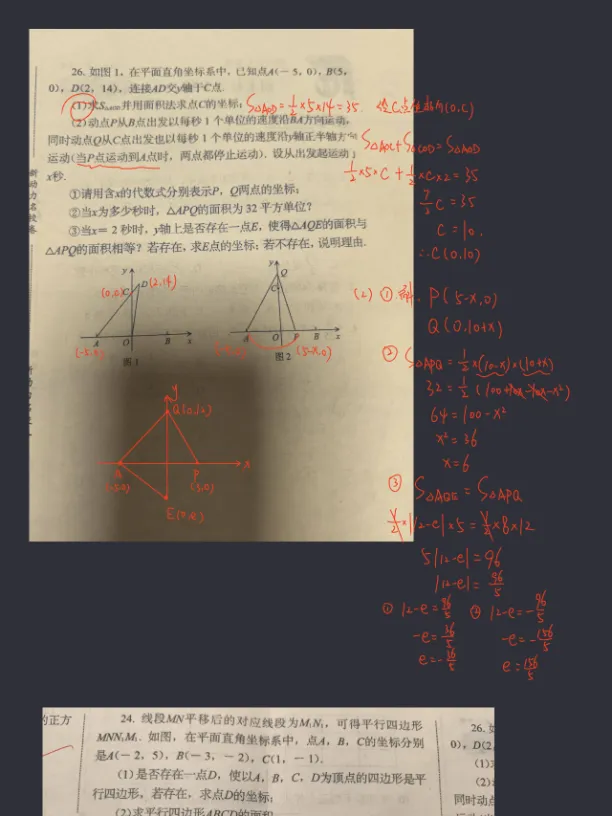 26. 如图1, 在平面直角坐标系中, 已知点A(-5, 0), B(5,
0), D(2, 14), 连接AD交y轴于C点.
(1)求S△AOD并用面积法求点C的坐标;
(2)动点P从B点出发以每秒1个单位的速度沿BA方向运动,
同时动点Q从C点出发也以每秒1个单位的速度沿y轴正半轴方向
运动(当P点运动到A点时, 两点都停止运动). 设从出发起运动了
x秒.
①请用含x的代数式分别表示P, Q两点的坐标;
②当x为多少秒时, △APQ的面积为32平方单位?
③当x=2秒时, y轴上是否存在一点E, 使得△AQE的面积与
△APQ的面积相等? 若存在, 求E点的坐标; 若不存在, 说明理由.
y
D (2,14)
(0,0) C
A O B x
(-5,0)
图1
y
Q
C
A O P B x
(-5,0) (5-x,0)
图2
y
Q(0,12)
A P x
(-5,0) (3,0)
E(0,e)
S△AOD=½×5×14=35. 设C点坐标为(0,C)
S△AOC+S△COD=S△AOD
½×5×C+½×C×2=35
7/2 C=35
C=10.
∴C(0,10)
(2) ① P(5-x,0)
Q(0,10+x)
② S△APQ=½×(10-x)×(10+x)
32=½(100+10x-10x-x²)
64=100-x²
x²=36
x=6
③ S△AQE=S△APQ
½×|12-e|×5=½×8×12
5|12-e|=96
|12-e|=96/5
① 12-e=96/5 ② 12-e=-96/5
-e=36/5 -e=-156/5
e=-36/5 e=156/5
的正方
24. 线段MN平移后的对应线段为M₁N₁, 可得平行四边形
MNN₁M₁. 如图, 在平面直角坐标系中, 点A, B, C的坐标分别
是A(-2, 5), B(-3, -2), C(1, -1).
(1)是否存在一点D, 使以A, B, C, D为顶点的四边形是平
行四边形, 若存在, 求点D的坐标;
(2)求平行四边形ABCD的面积
26.
0), D(2
(1)
(2)
同时动点